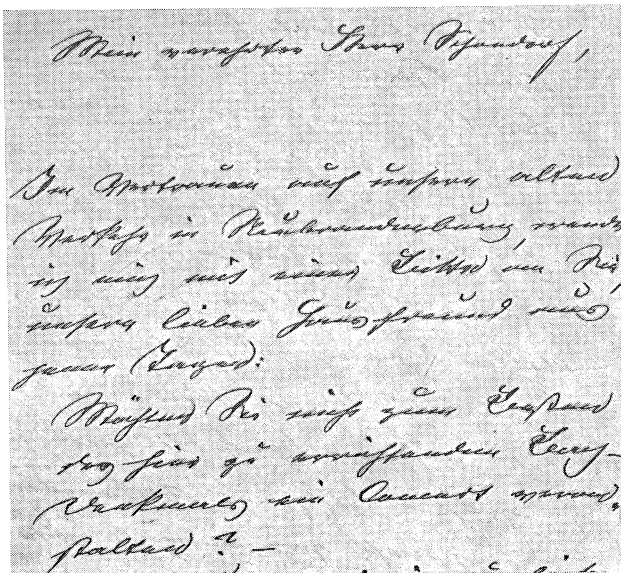 Mein verehrter Herr Schondorf,
Im Vertrauen auf unsern alten
Verkehr in Neubrandenburg, wende
ich mich mit einer Bitte an Sie,
unsern lieben Hausfreund aus
jenen Tagen:
Möchten Sie nicht zum Besten
des hier zu errichtenden Bach-
Denkmals ein Concert veran-
stalten? –